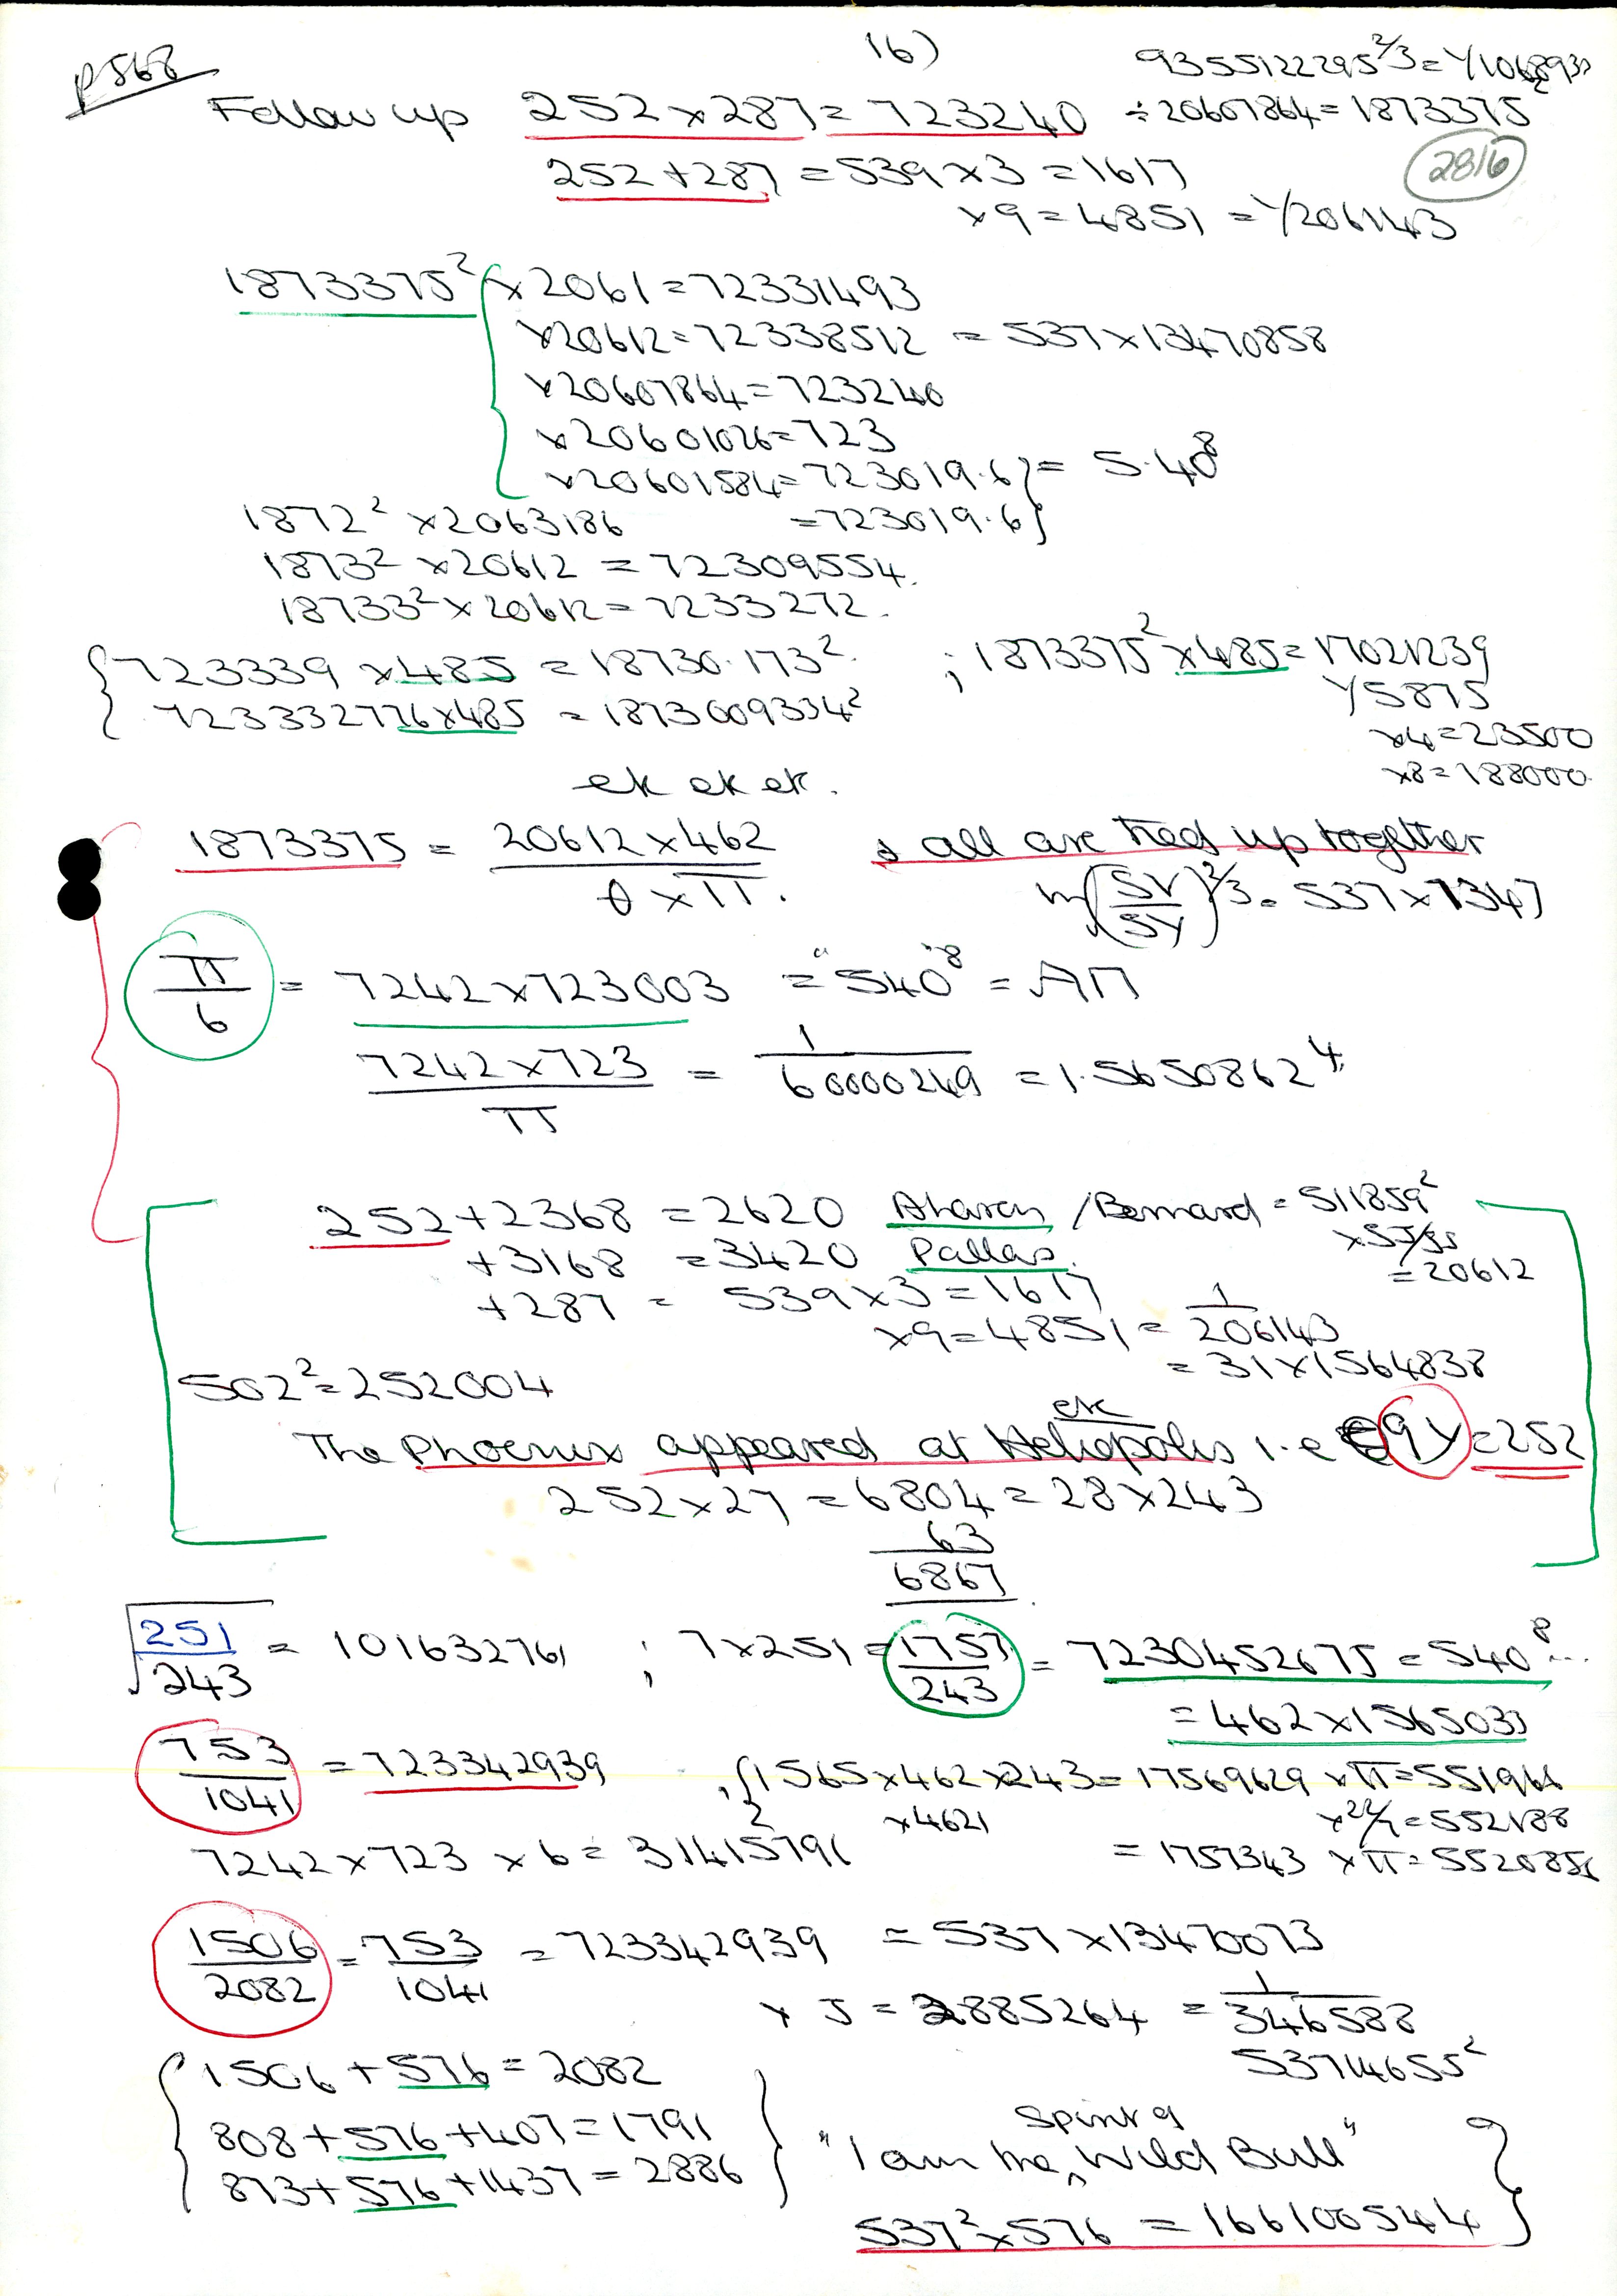 16)
p568
9355122295^2/3 = 1/1068930
Follow up 252 x 287 = 723240 ÷ 20607864 = 1873375^2
252 + 287 = 539 x 3 = 1617
2816
x 9 = 4851 = 1/206143
1873375^2 { x 2061 = 72331493
x 20612 = 72338512 = 537 x 13470858
x 20607864 = 723240
x 20601026 = 723
x 20601584 = 723019.6 } = 5.40^8
1872^2 x 2063186 = 723019.6 }
1873^2 x 20612 = 72309554.
18733^2 x 20612 = 7233272.
{ 723339 x 485 = 18730.173^2 ; 1873375^2 x 485 = 17021239
1/5875
{ 723332776 x 485 = 1873009334^2
x4 = 23500
x8 = 188000.
ek ek ek.
1873375 = 20612 x 462 / θ x π. & all are tied up together
in (SV/SY)^2/3 = 537 x 1347
π/6 = 7242 x 723003 = "540"^8 = АП
7242 x 723 / π = 1/60000249 = 1.5650862^4
252 + 2368 = 2620 Aharon / Bernard = 511859^2
x SJ/SS
+ 3168 = 3420 Pallas.
= 20612
+ 287 = 539 x 3 = 1617
x 9 = 4851 = 1/206143
= 31 x 1564838
502^2 = 252004
ek
The Phoenix appeared at Heliopolis i.e 9Y = 252
252 x 27 = 6804 = 28 x 243
63
6867
√251/243 = 101632761 ; 7 x 251 = 1757/243 = 7230452675 = 540^8...
= 462 x 1565033
753/1041 = 723342939 , { 1565 x 462 x 243 = 17569629 x π = 551966
x 4621 x 22/7 = 552188
7242 x 723 x 6 = 31415796 = 1757343 x π = 5520856
1506/2082 = 753/1041 = 723342939 = 537 x 13470073
x J = 3885264 = 1/346588
53714655^2
{ 1506 + 576 = 2082
808 + 576 + 407 = 1791
spirit of
"I am the ^ Wild Bull"
873 + 576 + 1437 = 2886 }
537^2 x 576 = 166100544 }